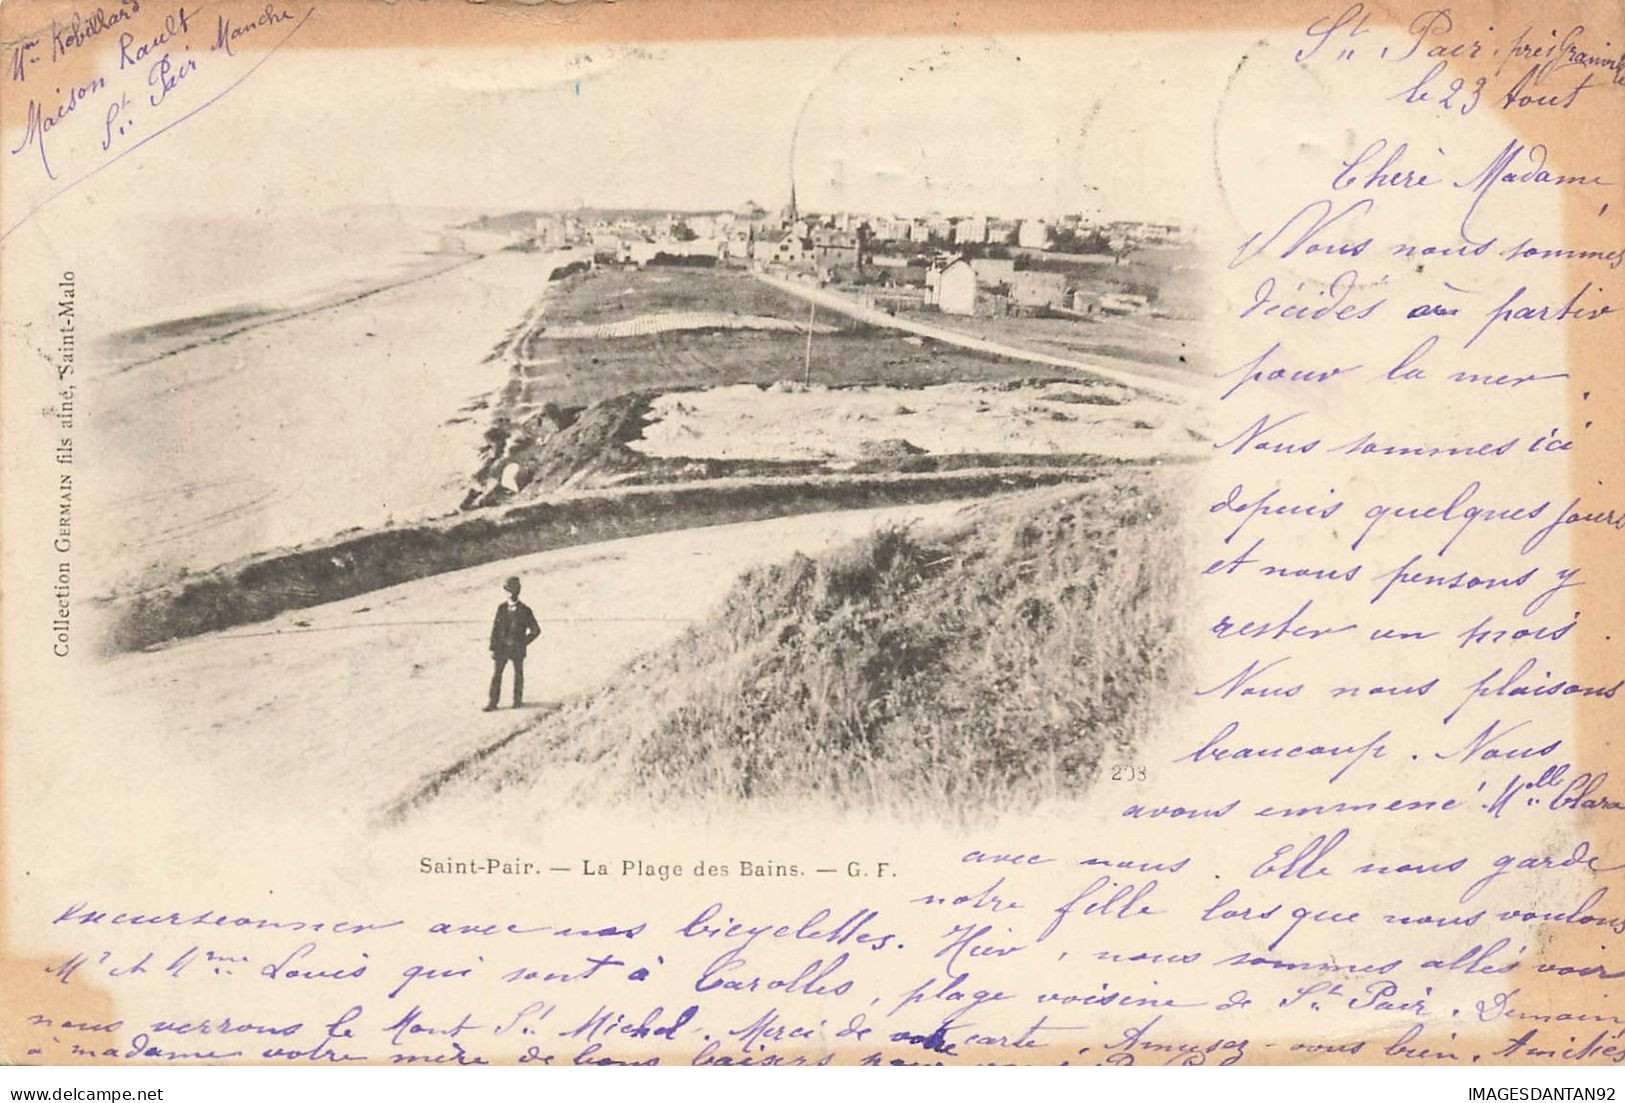 Mme Robillard
Maison Rault
St Pair Manche
St Pair, près Granville
le 23 Aout
Chère Madame,
Nous nous sommes
décidés à partir
pour la mer.
Nous sommes ici
depuis quelques jours
et nous pensons y
rester un mois.
Nous nous plaisons
beaucoup. Nous
avons emmené Mlle Clara
avec nous. Elle nous garde
notre fille lorsque nous voulons
excursionner avec nos bicyclettes. Hier, nous sommes allés voir
Mr et Mme Louis qui sont à Carolles, plage voisine de St Pair. Demain
nous verrons le Mont St Michel. Merci de votre carte. Amusez-vous bien. Amitiés
à madame votre mère de bons baisers pour
Collection GERMAIN fils aîné, Saint-Malo
208
Saint-Pair. — La Plage des Bains. — G. F.
IMAGESDANTAN92